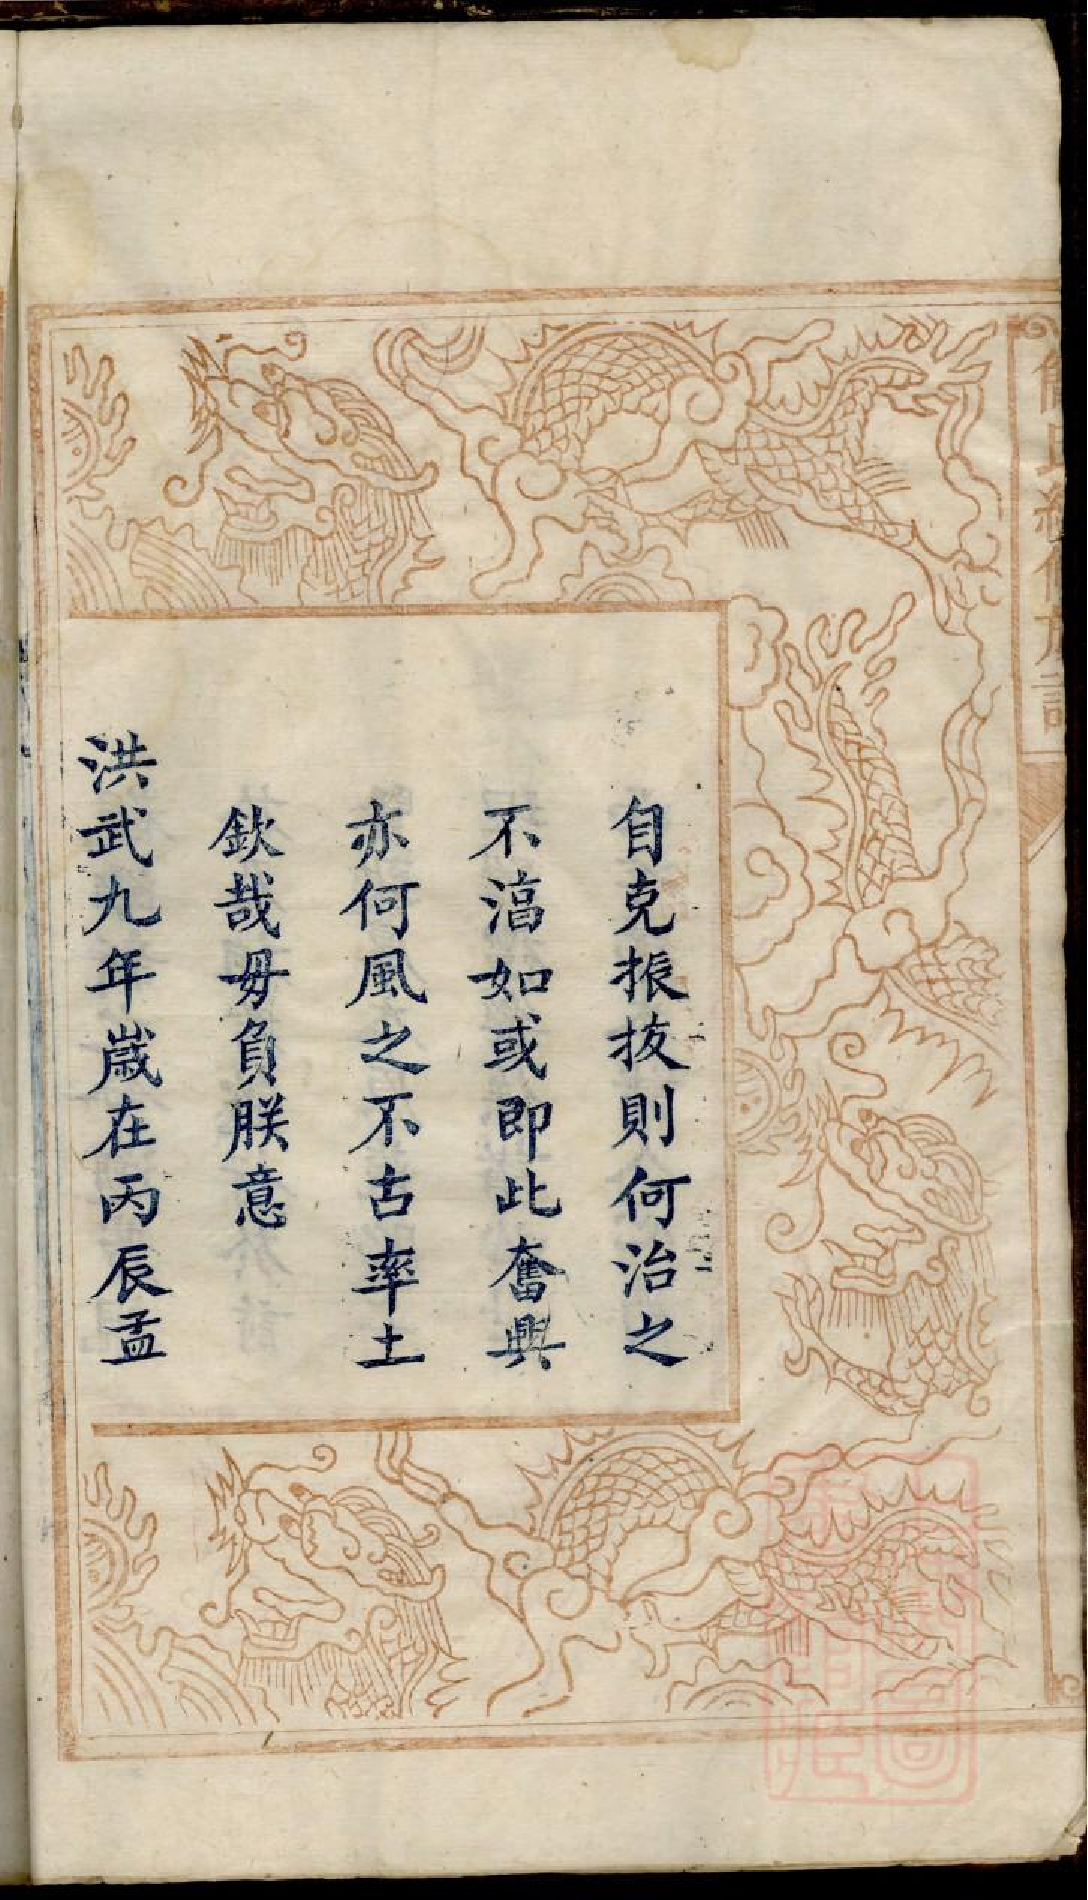 自克振拔則何治之
不滈如或即此奮興
亦何風之不古率土
欽哉毋負朕意
洪武九年歲在丙辰孟